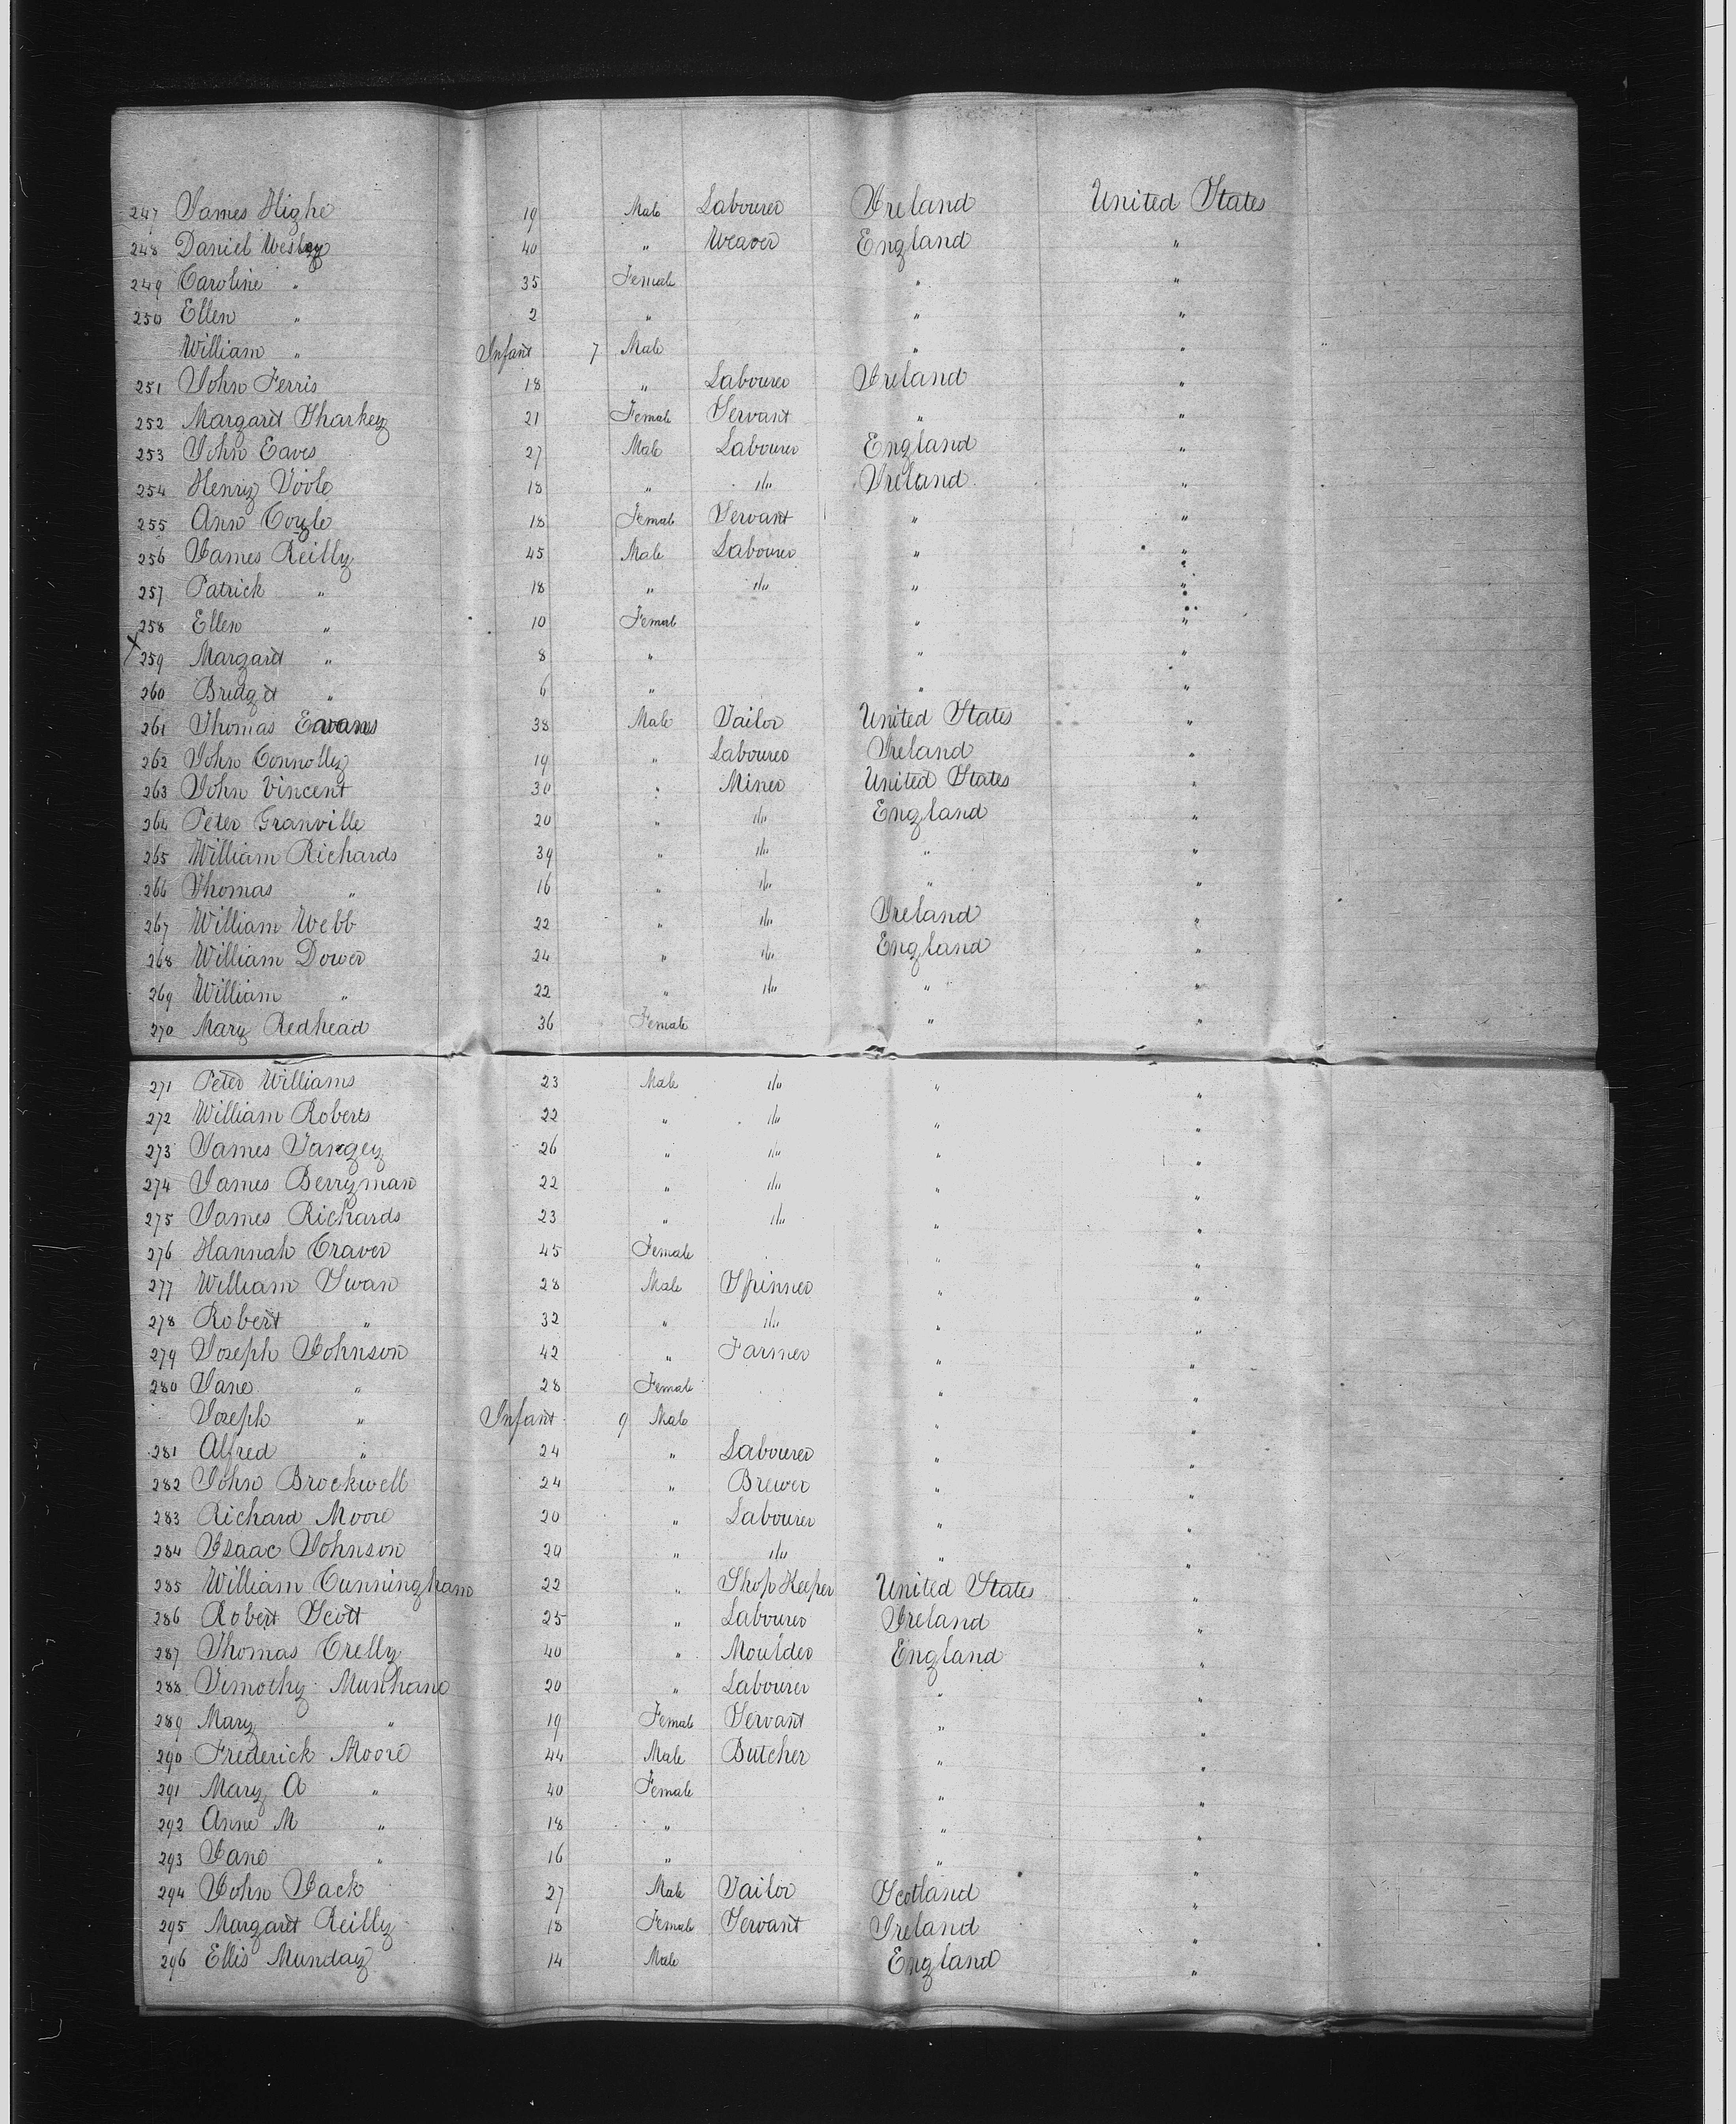 247 James Highe 19 Male Labourer Ireland United States
248 Daniel Wesley 40 " Weaver England "
249 Caroline " 35 Female " "
250 Ellen " 2 " " "
William " Infant 7 Male " "
251 John Ferris 18 " Labourer Ireland "
252 Margaret Sharkey 21 Female Servant " "
253 John Eaves 27 Male Labourer England "
254 Henry Toole 18 " " Ireland "
255 Ann Coyle 18 Female Servant " "
256 James Reilly 45 Male Labourer " "
257 Patrick " 18 " " " "
258 Ellen " 10 Female " "
X 259 Margaret " 8 " " "
260 Bridget " 6 " " "
261 Thomas Evans 38 Male Tailor United States "
262 John Connolly 19 " Labourer Ireland "
263 John Vincent 30 " Miner United States "
264 Peter Granville 20 " " England "
265 William Richards 39 " " " "
266 Thomas " 16 " " " "
267 William Webb 22 " " Ireland "
268 William Dower 24 " " England "
269 William " 22 " " " "
270 Mary Redhead 36 Female " "
271 Peter Williams 23 Male " " "
272 William Roberts 22 " " " "
273 James 26 " " " "
274 James Berryman 22 " " " "
275 James Richards 23 " " " "
276 Hannah Craver 45 Female "
277 William Swan 28 Male Spinner " "
278 Robert " 32 " " " "
279 Joseph Johnson 42 " Farmer " "
280 Jane " 28 Female " "
Joseph " Infant 9 Male " "
281 Alfred " 24 " Labourer " "
282 John Brockwell 24 " Brewer " "
283 Richard Moore 20 " Labourer " "
284 Isaac Johnson 20 " " " "
285 William Cunningham 22 " Shop Keeper United States "
286 Robert Scott 25 " Labourer Ireland "
287 Thomas Crelly 40 " Moulder England "
288 Timothy 20 " Labourer " "
289 Mary " 19 Female Servant " "
290 Frederick Moore 44 Male Butcher " "
291 Mary A " 40 Female " "
292 Anne M " 18 " " "
293 Jane " 16 " " "
294 John Jack 27 Male Tailor Scotland "
295 Margaret Reilly 18 Female Servant Ireland "
296 Ellis Munday 14 Male England "